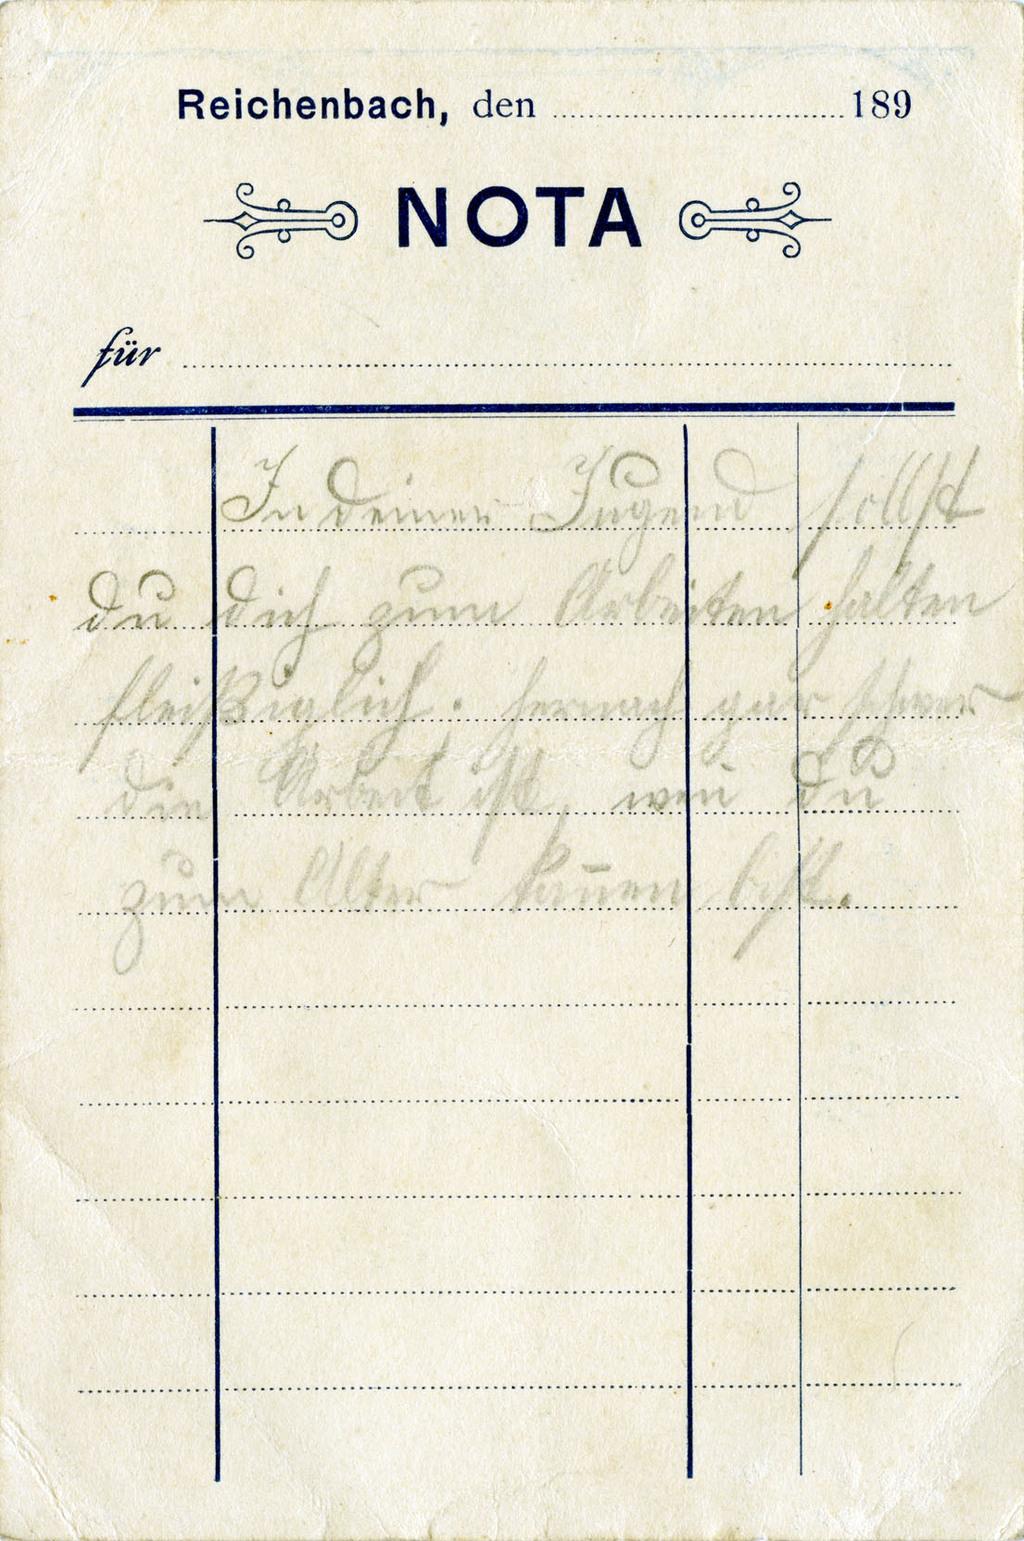 Reichenbach, den 189
NOTA
für
In deiner Jugend sollst
du dich zum Arbeiten halten
fleißiglich; hernach gar schwer
die Arbeit ist, wen̄ du
zum Alter kom̄en bist.